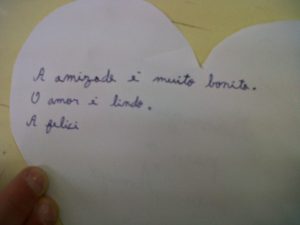 A amizade é muito bonita.
O amor é lindo.
A felici